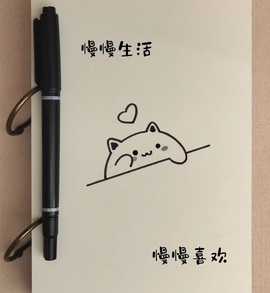 慢慢生活
慢慢喜欢